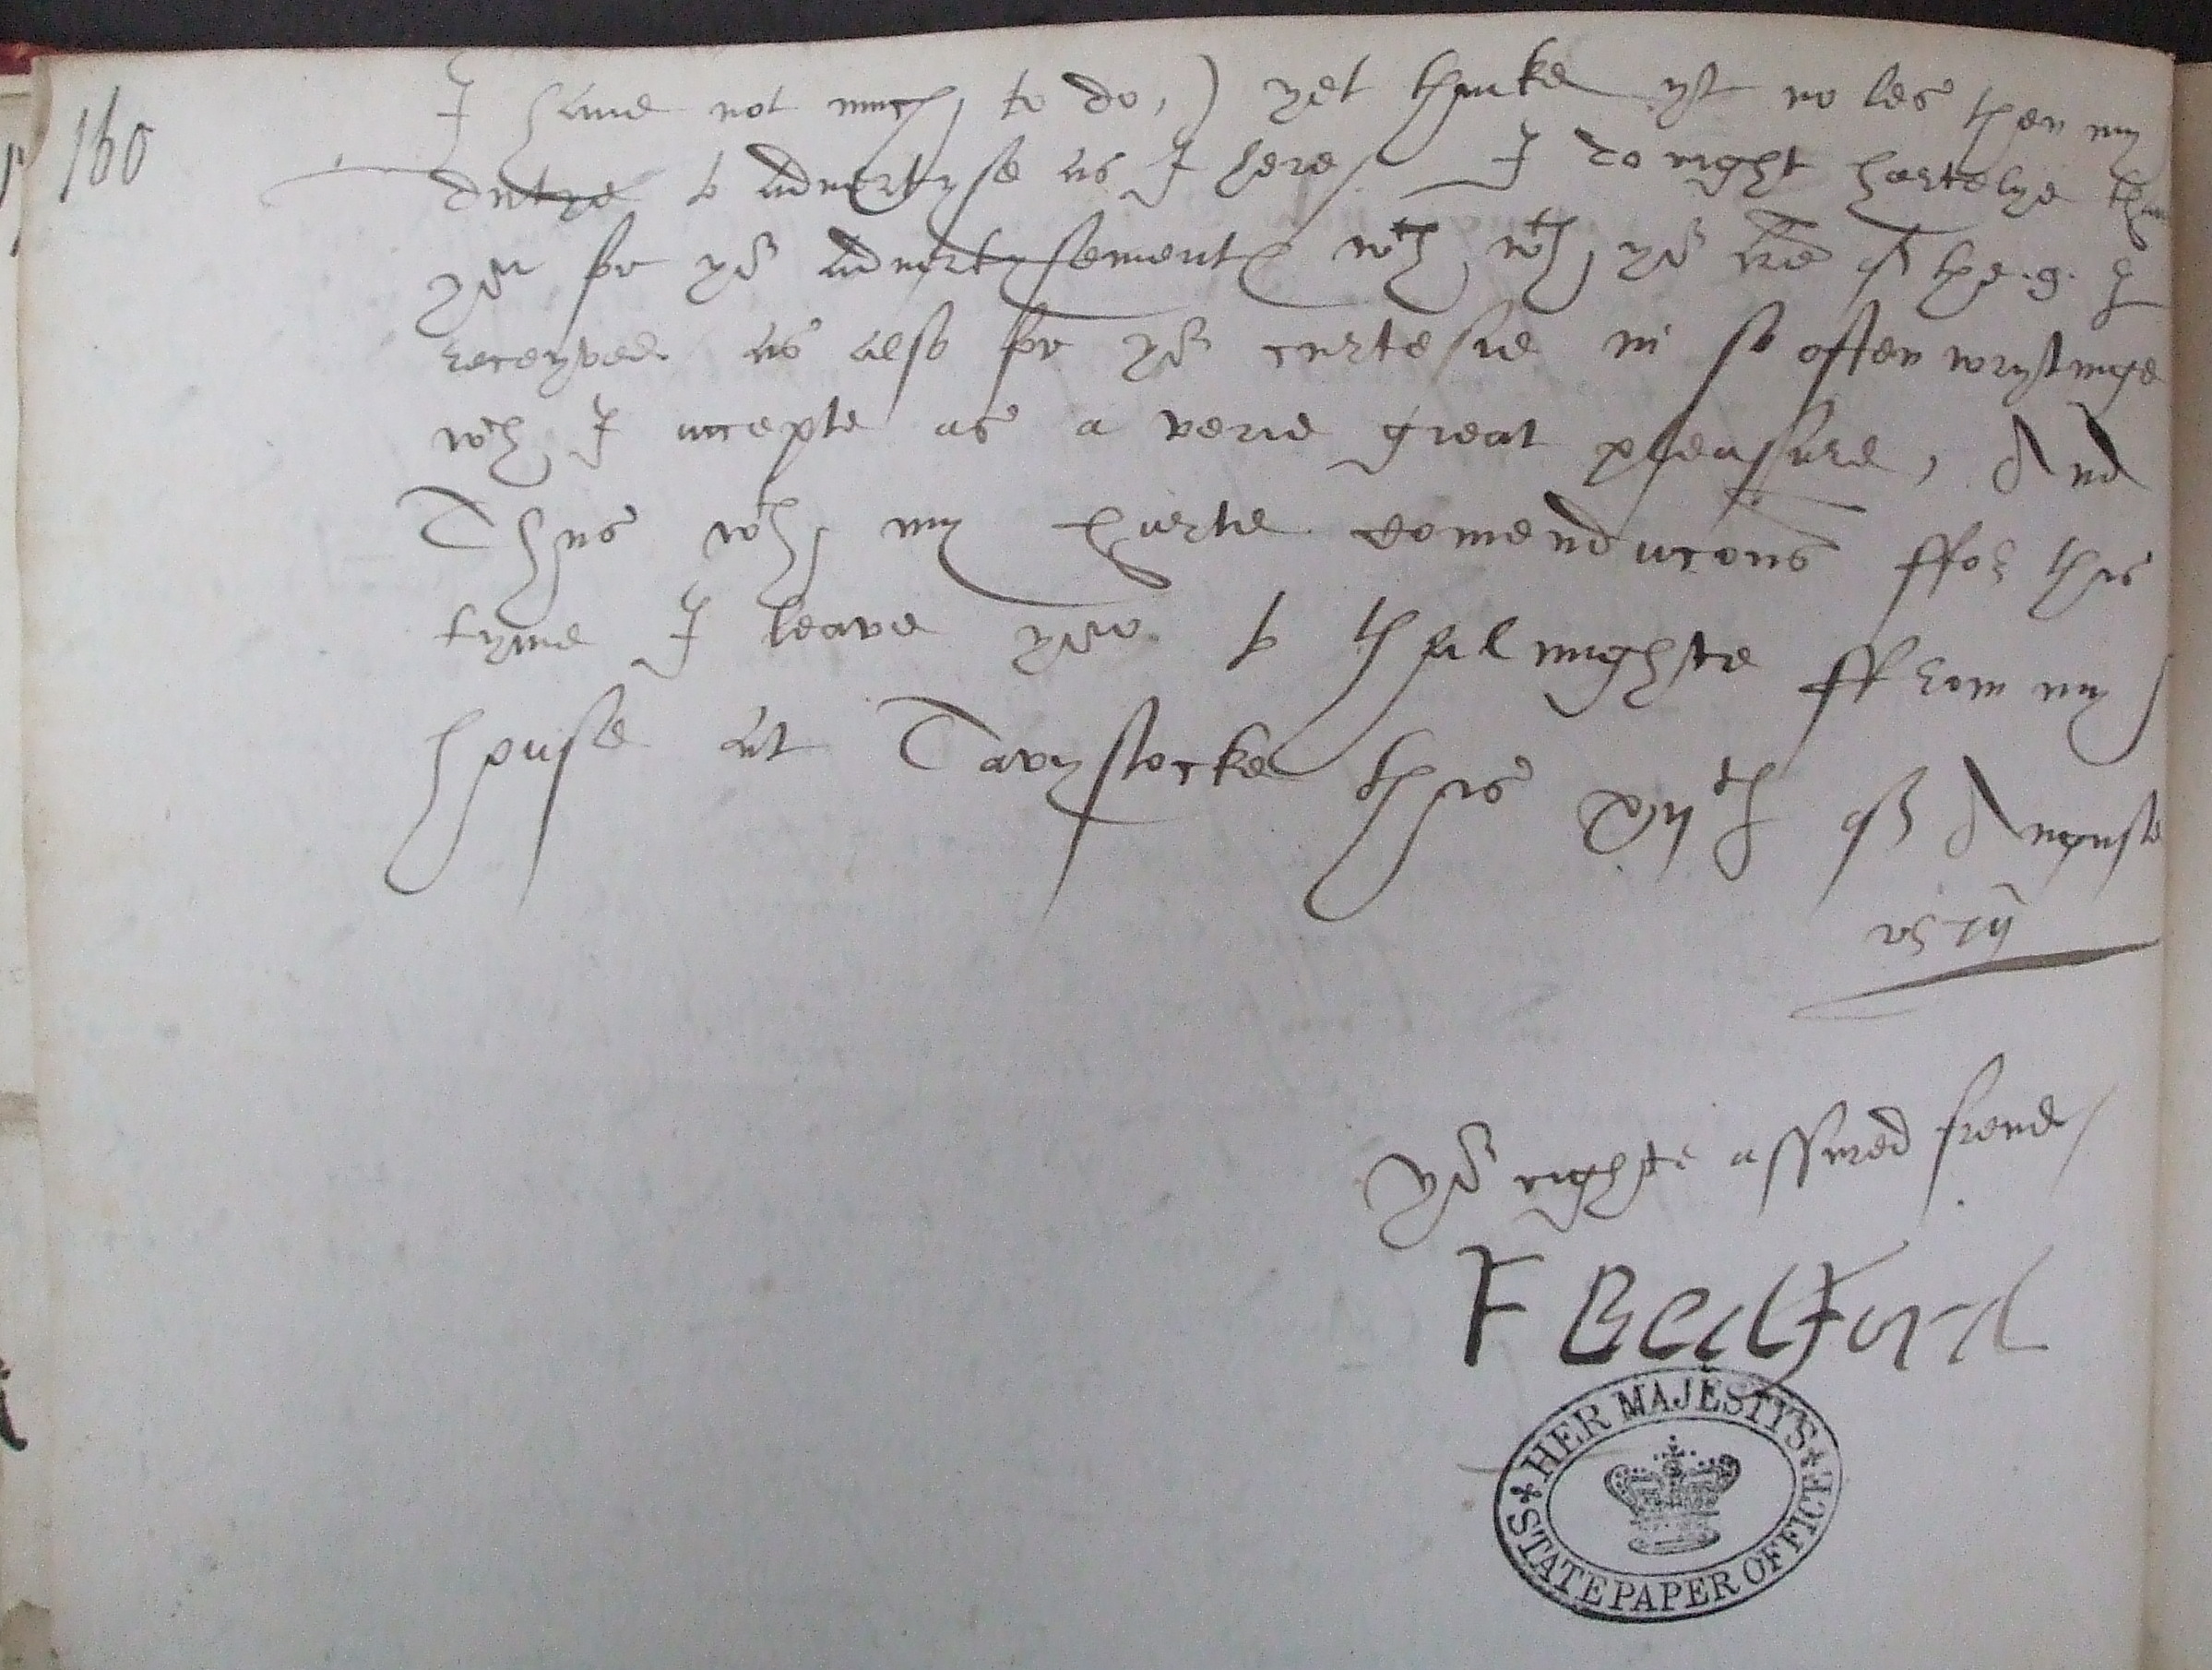 160
I haue not much to do,) yet thinke yt no les then my
dutye to aduertyse as I here / I do right hartelye than
you for yor aduertysement wch wth yor lre of the .9. I
receyved. as also for yor curtesie in so often wrytinge
wch I accepte as a verie great pleasure, And
Thus wth my hartie comendacons ffor this
tyme I leave you to thalmightie ffrom my
house at Tavystocke this xijth of Auguste
yor righte assured frend /
F Bedford
HER MAJESTY'S
STATE PAPER OFFICE